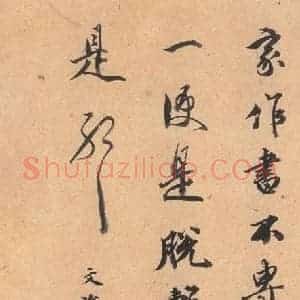 家作書不專
一便是脱
是耶
文
Shufaziliao.com